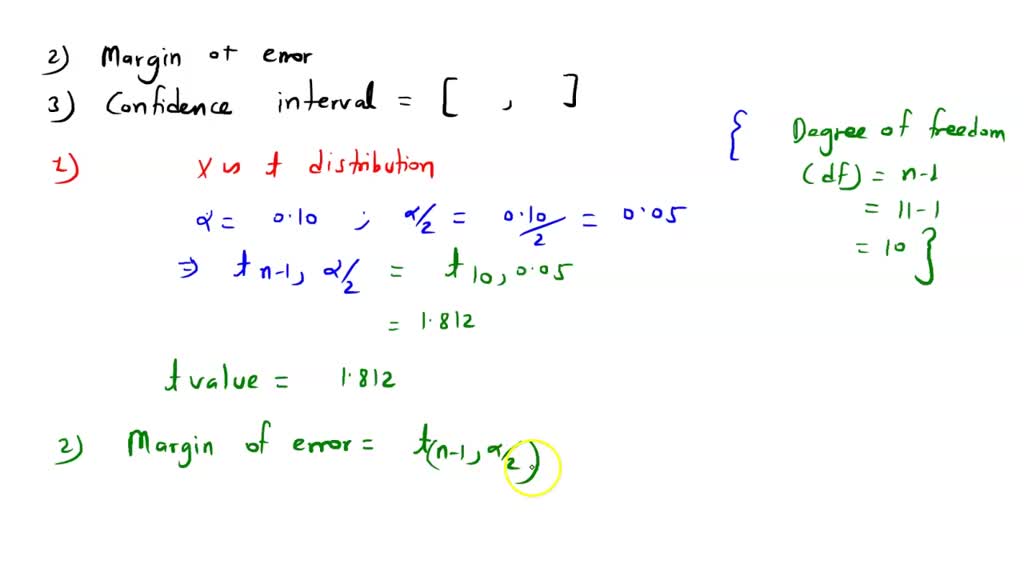 2) Margin of error
3) Confidence interval = [ , ]
1) X ~ t distribution
α = 0.10 ; α/2 = 0.10/2 = 0.05
⇒ t n-1, α/2 = t 10, 0.05
= 1.812
t value = 1.812
2) Margin of error = t(n-1, α/2)
{ Degree of freedom
(df) = n-1
= 11-1
= 10 }